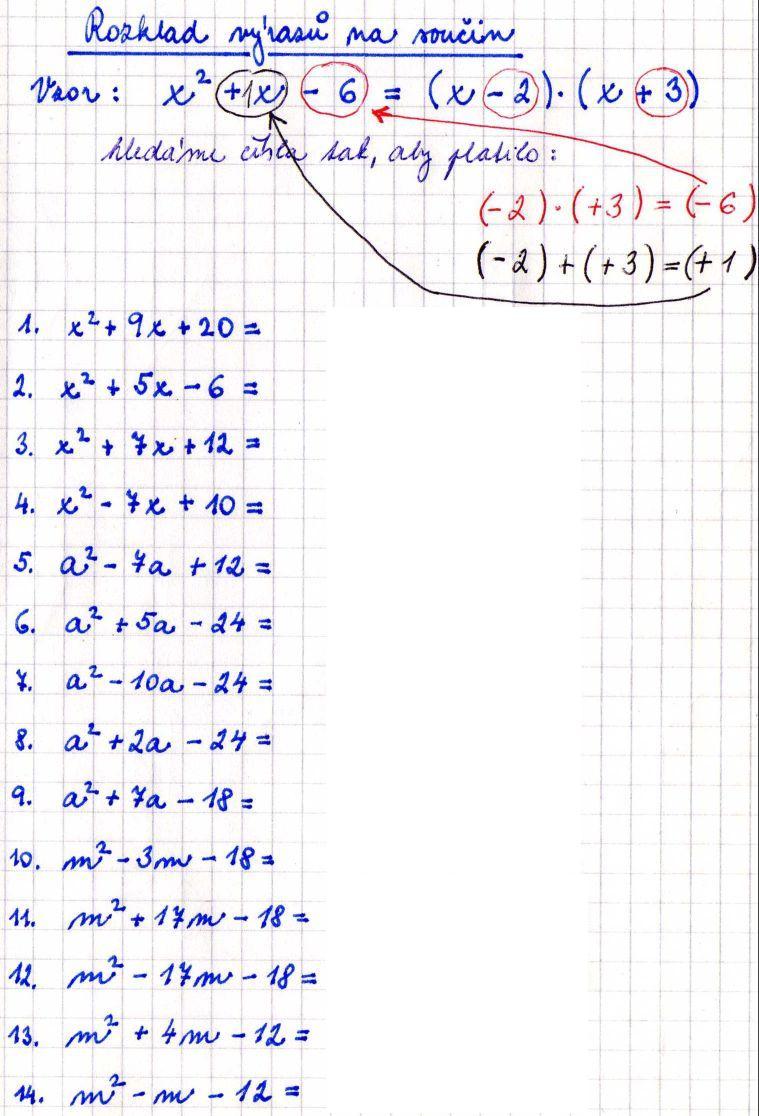 Rozklad výrazů na součin
Vzor: x² +1x - 6 = (x - 2)·(x + 3)
hledáme čísla tak, aby platilo:
(-2)·(+3) = (-6)
(-2) + (+3) = (+1)
1. x² + 9x + 20 =
2. x² + 5x - 6 =
3. x² + 7x + 12 =
4. x² - 7x + 10 =
5. a² - 7a + 12 =
6. a² + 5a - 24 =
7. a² - 10a - 24 =
8. a² + 2a - 24 =
9. a² + 7a - 18 =
10. m² - 3m - 18 =
11. m² + 17m - 18 =
12. m² - 17m - 18 =
13. m² + 4m - 12 =
14. m² - m - 12 =